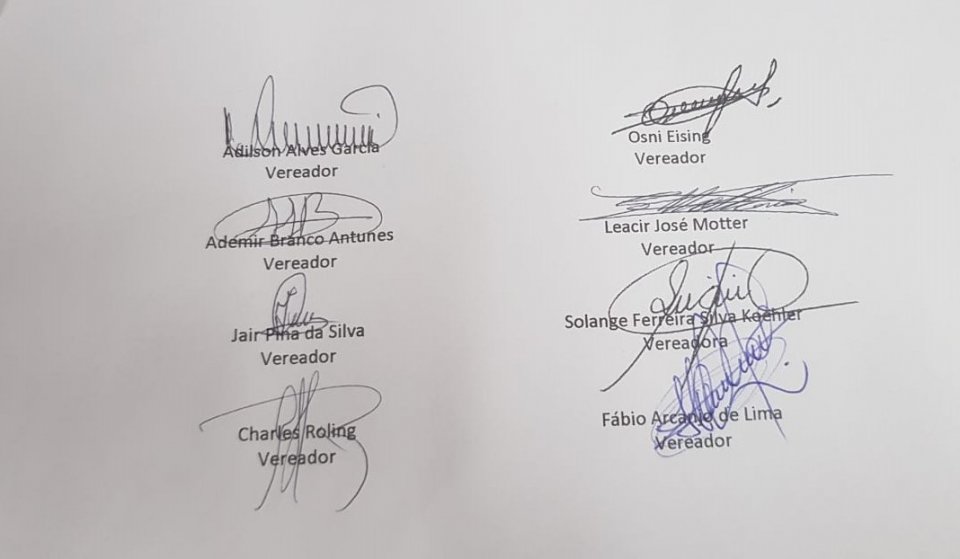 Adilson Alves Garcia
Vereador
Ademir Branco Antunes
Vereador
Jair Pina da Silva
Vereador
Charles Roling
Vereador
Osni Eising
Vereador
Leacir José Motter
Vereador
Solange Ferreira Silva Koehler
Vereadora
Fábio Arcanjo de Lima
Vereador